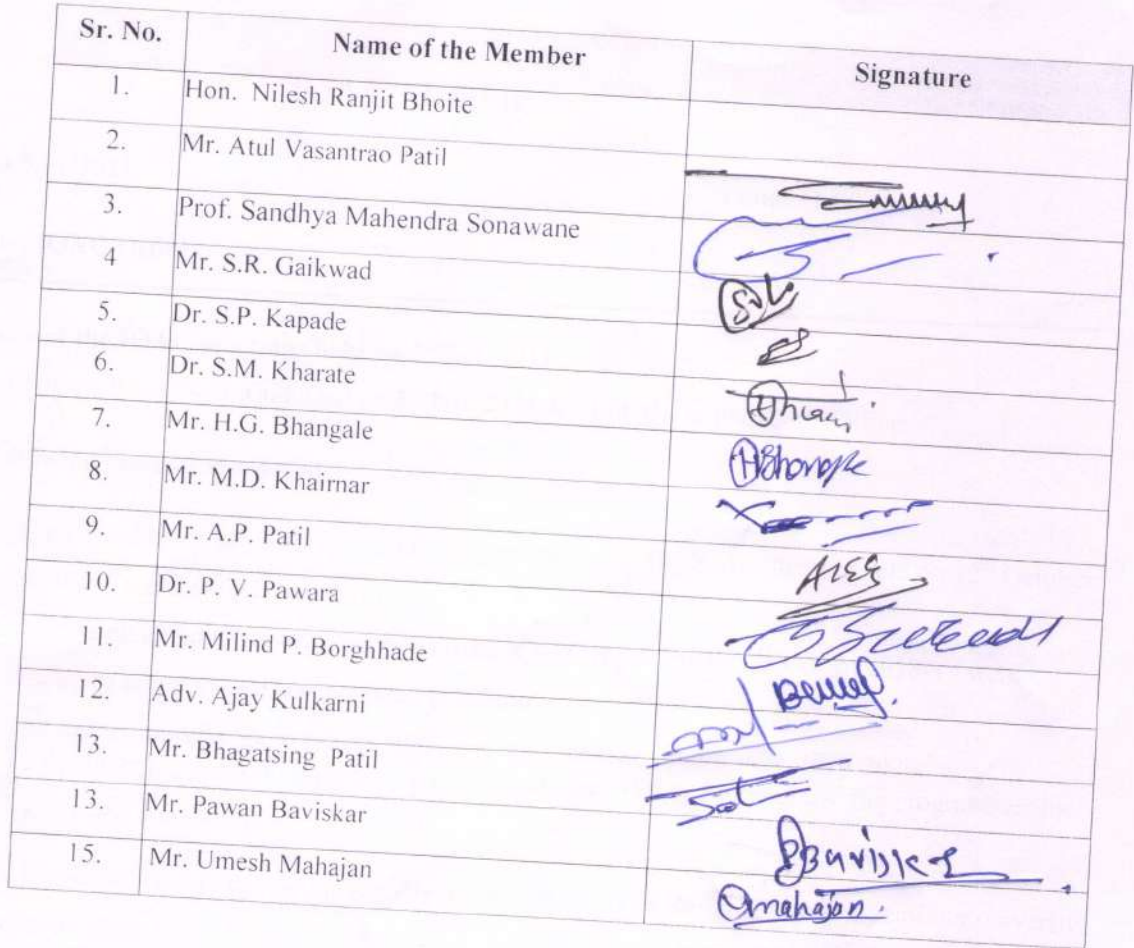 Sr. No. Name of the Member Signature
1. Hon. Nilesh Ranjit Bhoite
2. Mr. Atul Vasantrao Patil
3. Prof. Sandhya Mahendra Sonawane
4 Mr. S.R. Gaikwad
5. Dr. S.P. Kapade
6. Dr. S.M. Kharate
7. Mr. H.G. Bhangale
8. Mr. M.D. Khairnar
9. Mr. A.P. Patil
10. Dr. P. V. Pawara
11. Mr. Milind P. Borghhade
12. Adv. Ajay Kulkarni
13. Mr. Bhagatsing Patil
13. Mr. Pawan Baviskar
15. Mr. Umesh Mahajan